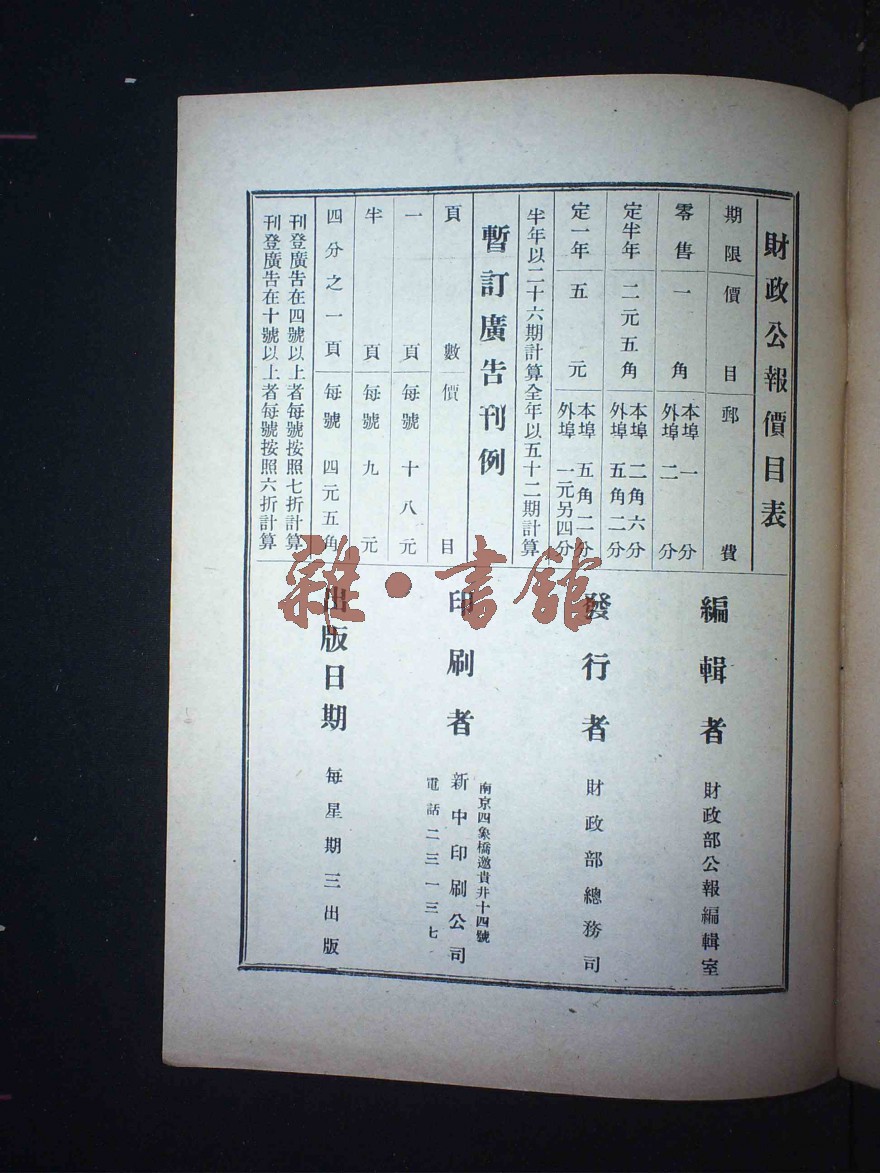 財政公報價目表
期限 價目 郵費
零售 一角 本埠 一分 外埠 二分
定半年 二元五角 本埠 二角六分 外埠 五角二分
定一年 五元 本埠 五角二分 外埠 一元另四分
半年以二十六期計算全年以五十二期計算
暫訂廣告刊例
頁數 價目
一頁 每號十八元
半頁 每號九元
四分之一頁 每號四元五角
刊登廣告在四號以上者每號按照七折計算
刊登廣告在十號以上者每號按照六折計算
編輯者 財政部公報編輯室
發行者 財政部總務司
印刷者
南京四象橋邀貴井十四號
新中印刷公司
電話二三一三七
出版日期 每星期三出版
雜·書館